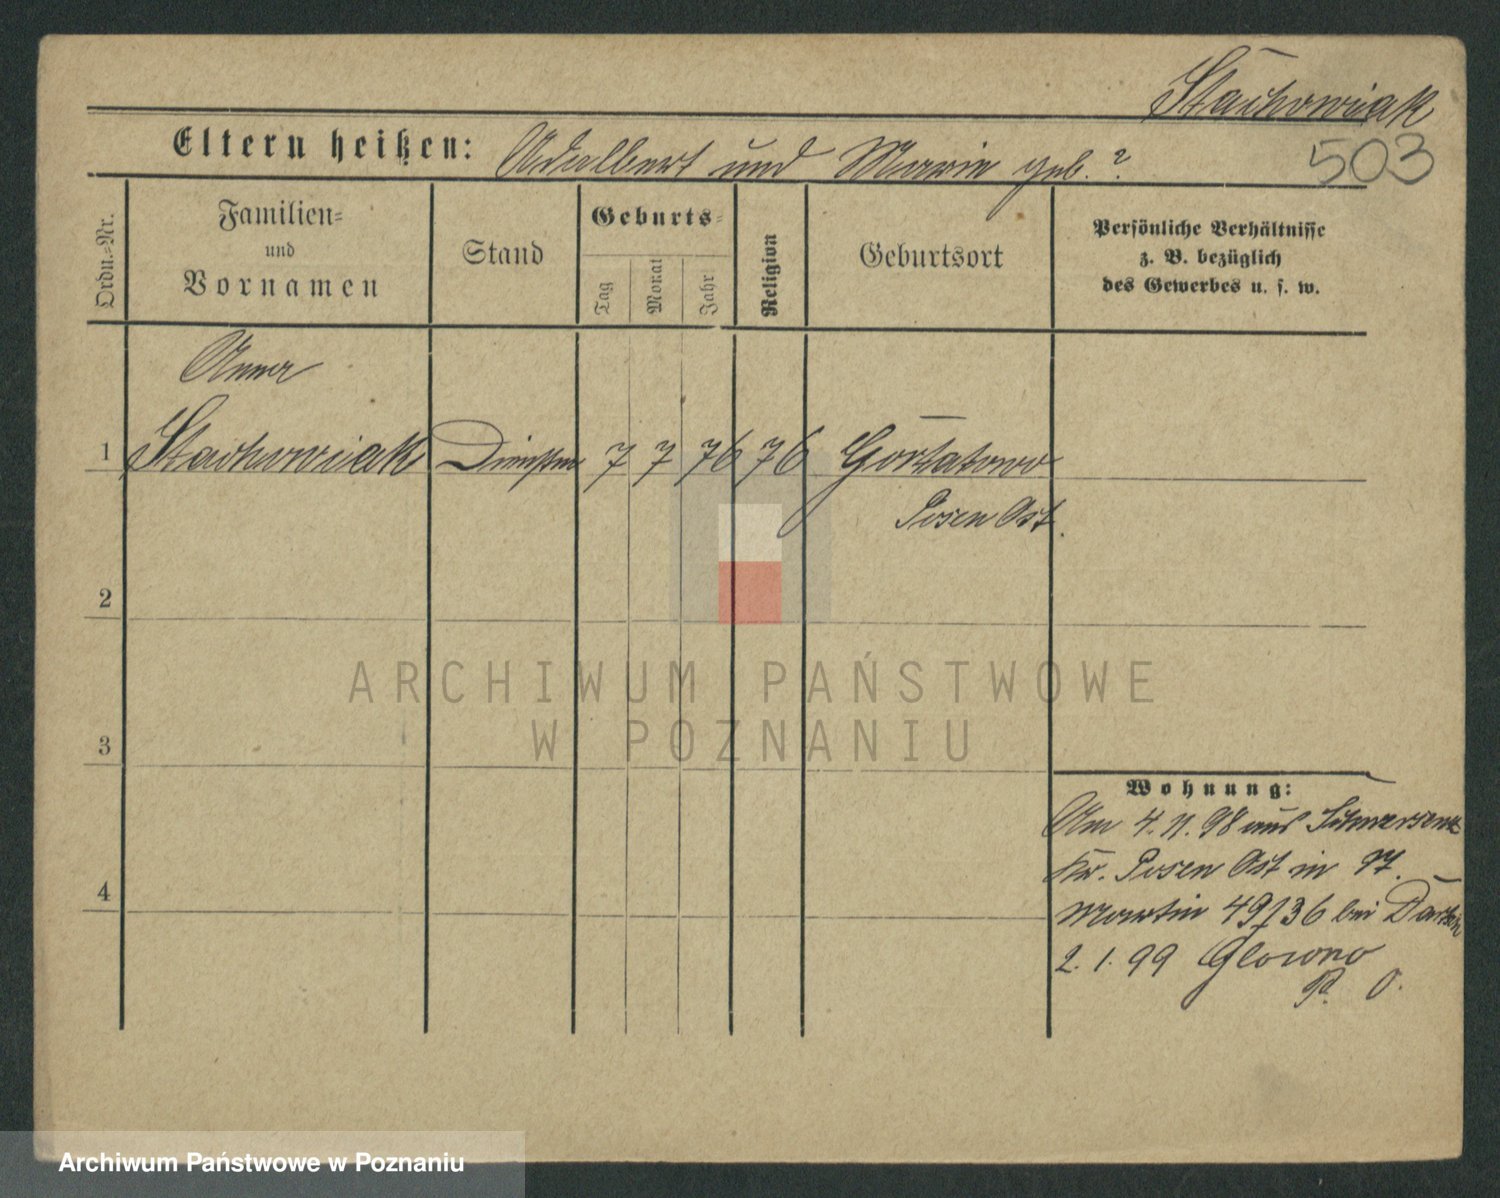 Stachowiak
503
Eltern heißen: Adalbert und Marie geb. ?
Ordn.-Nr.
Familien-
und
Vornamen
Stand
Geburts-
Tag
Monat
Jahr
Religion
Geburtsort
Persönliche Verhältnisse
z. B. bezüglich
des Gewerbes u. s. w.
Anna
1 Stachowiak 7 7 76 76
Posen Ost.
2
3
4
ARCHIWUM PAŃSTWOWE
W POZNANIU
Wohnung:
Am 4. 11. 98 aus Schwersenz
Kr. Posen Ost in St.
Martin 49/36 bei
2. 1. 99 Glowno
P. O.
Archiwum Państwowe w Poznaniu